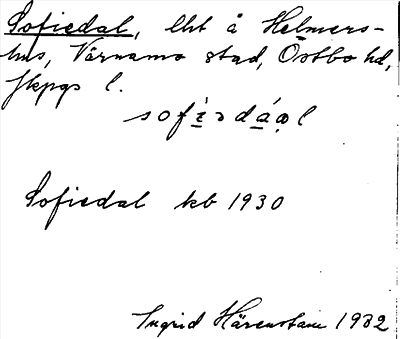 Sofiedal, lht å Helmers-
hus, Värnamo stad, Östbo hd,
Jkpgs l.
sofìədáal
Sofiedal kb 1930
Ingrid Härenstam 1932